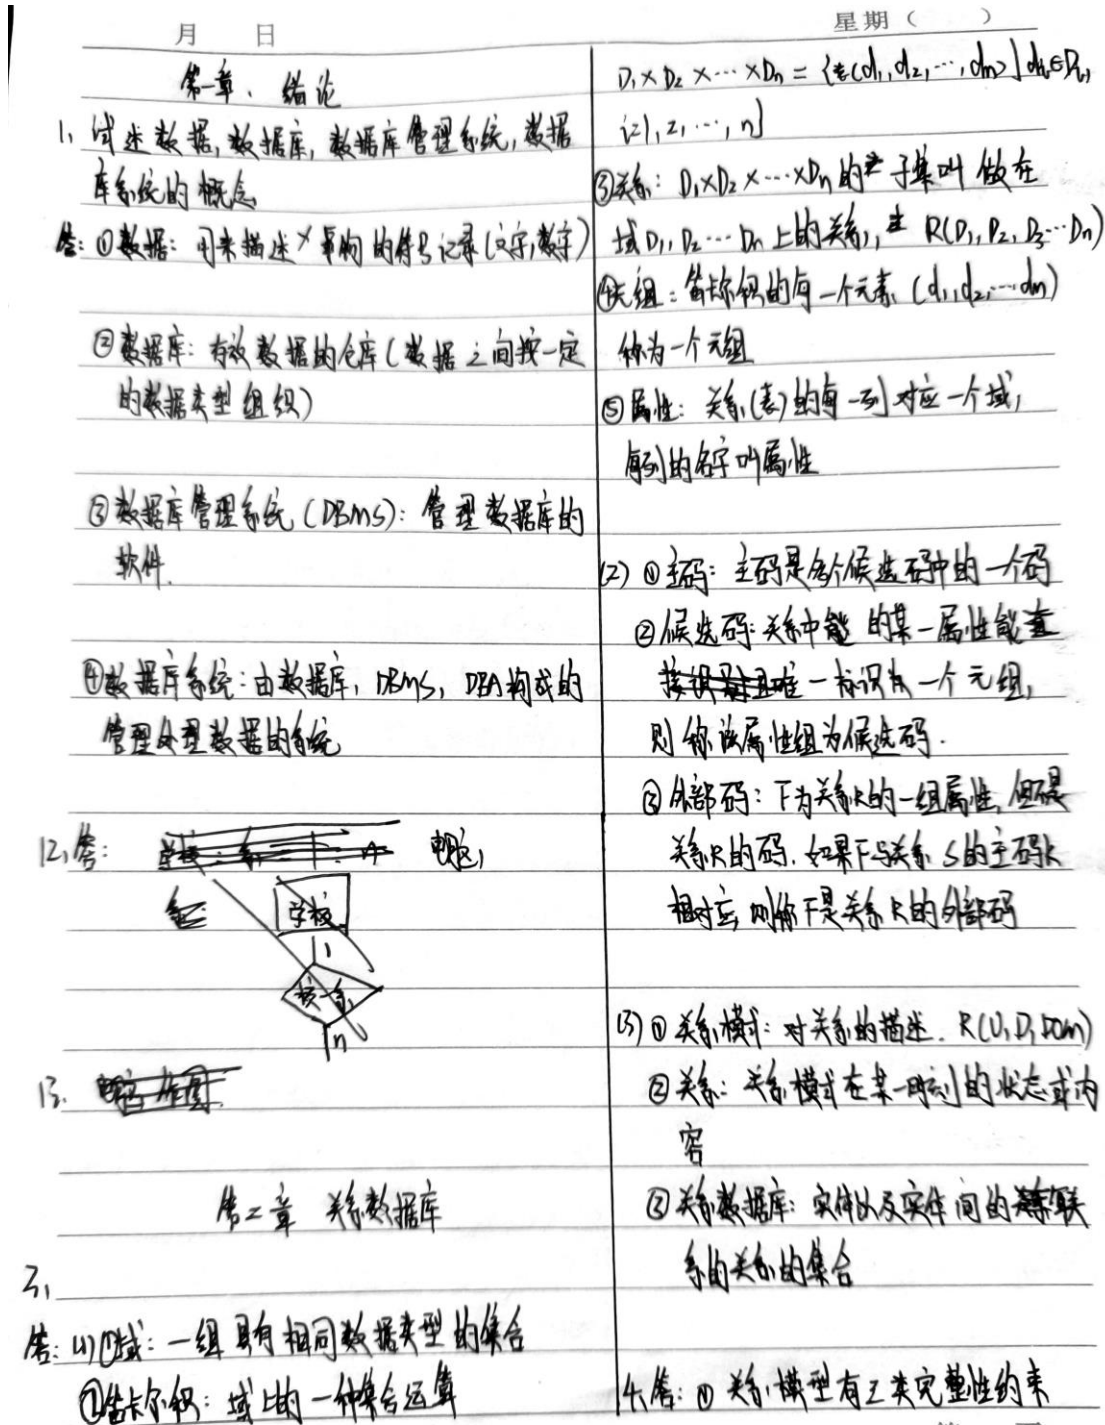 月 日
星期（ ）
第一章、绪论
1、试述数据,数据库,数据库管理系统,数据
库系统的概念
答:①数据:用来描述事物的符号记录(文字,数字)
②数据库:存放数据的仓库(数据之间按一定
的数据类型组织)
③数据库管理系统(DBMS):管理数据库的
软件.
④数据库系统:由数据库,DBMS,DBA构成的
管理处理数据的系统
12,答:
学校
1
校一系
n
13.
第二章 关系数据库
3,
答:(1)①域:一组具有相同数据类型的集合
②笛卡尔积:域上的一种集合运算
D₁×D₂×…×Dn={(d₁,d₂,…,dn)|di∈Di,
i=1,2,…,n}
③关系:D₁×D₂×…×Dn的子集叫做在
域D₁,D₂…Dn上的关系, R(D₁,D₂,D₃…Dn)
④元组:笛卡尔积的每一个元素(d₁,d₂,…dn)
称为一个元组
⑤属性:关系(表)的每一列对应一个域,
每列的名字叫属性
(2)①主码:主码是多个候选码中的一个码
②候选码:关系中的某一属性能
唯一标识为一个元组,
则称该属性组为候选码.
③外部码:F为关系R的一组属性,但不是
关系R的码.如果F与关系S的主码K
相对应,则称F是关系R的外部码
(3)①关系模式:对关系的描述. R(U,D,DOM)
②关系:关系模式在某一时刻的状态或内
容
③关系数据库:实体以及实体间的联
系的关系的集合
4.答:①关系模型有三类完整性约束